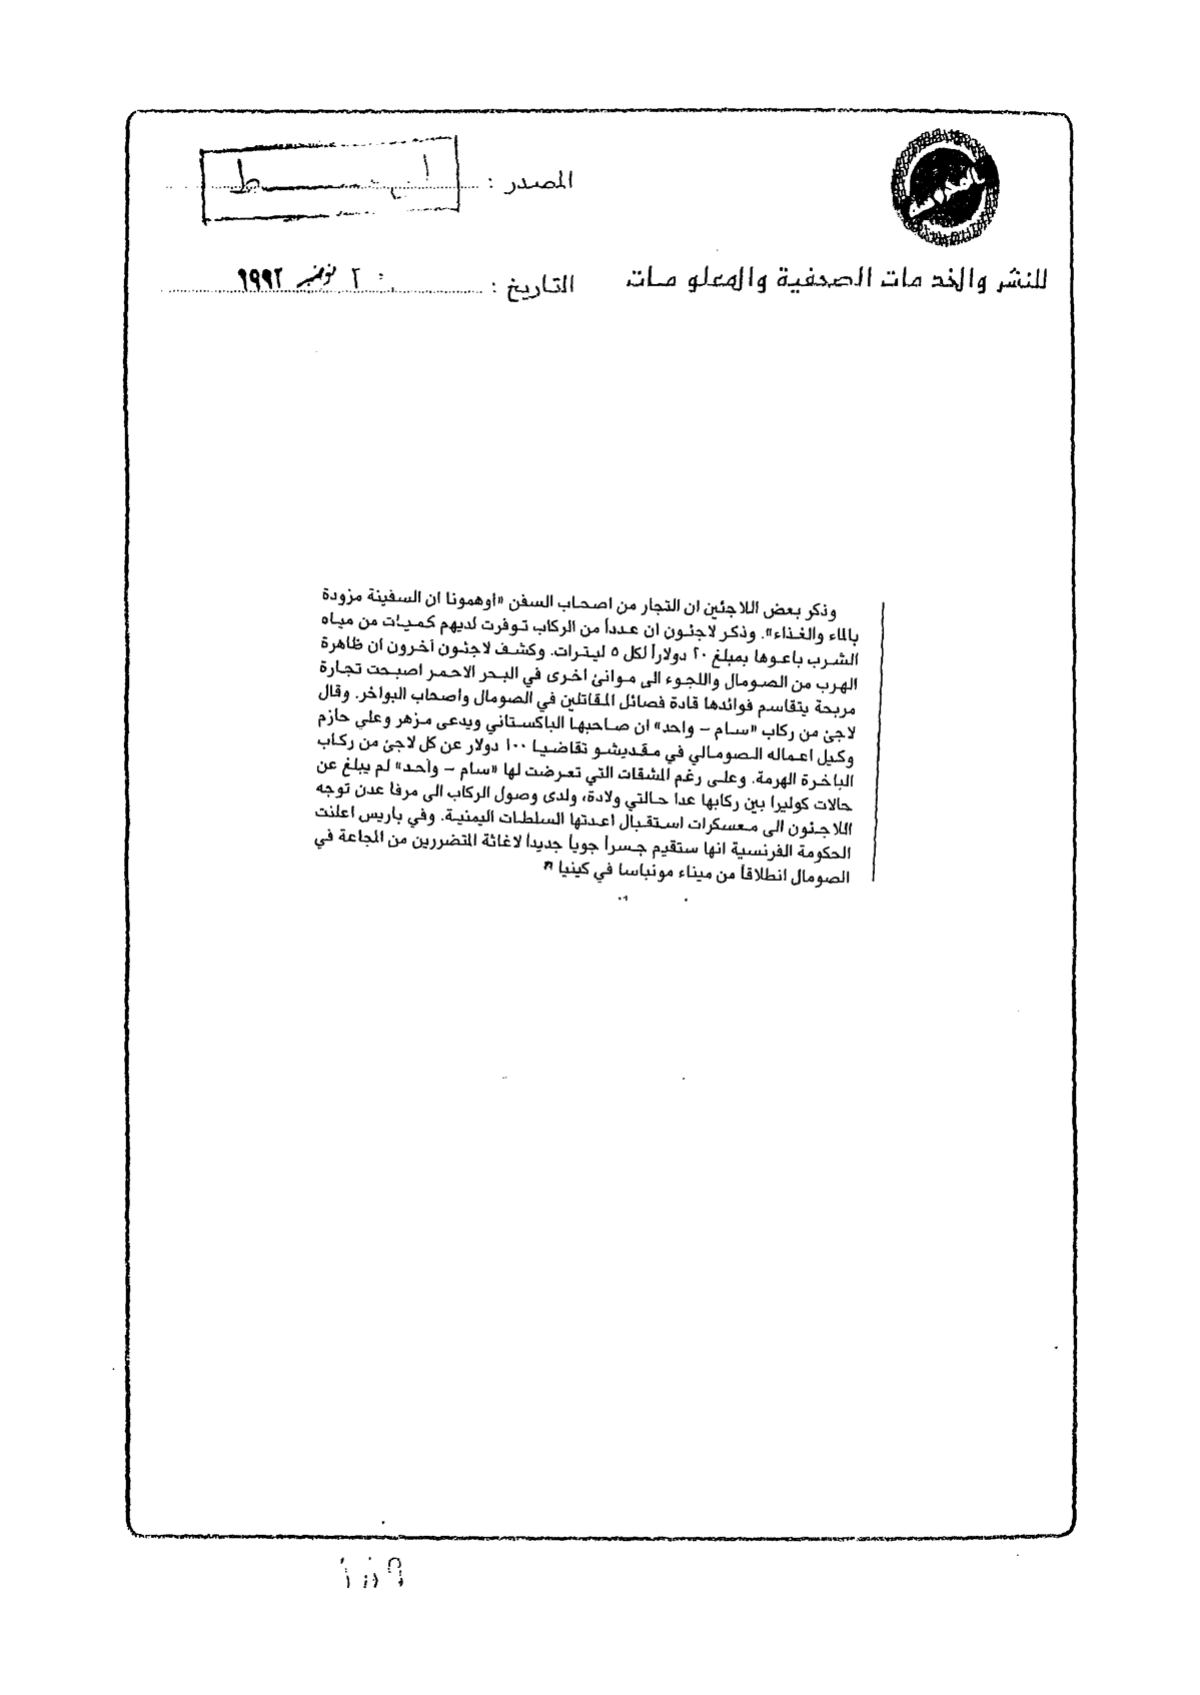 المصدر :
للنشر والخدمات الصحفية والمعلومات
التاريخ : ٢ نوفمبر ١٩٩٢
وذكر بعض اللاجئين ان التجار من اصحاب السفن «أوهمونا ان السفينة مزودة
بالماء والغذاء». وذكر لاجئون ان عدداً من الركاب توفرت لديهم كميات من مياه
الشرب باعوها بمبلغ ٢٠ دولاراً لكل ٥ ليترات. وكشف لاجئون آخرون ان ظاهرة
الهرب من الصومال واللجوء الى موانئ اخرى في البحر الاحمر اصبحت تجارة
مربحة يتقاسم فوائدها قادة فصائل المقاتلين في الصومال واصحاب البواخر. وقال
لاجئ من ركاب «سام – واحد» ان صاحبها الباكستاني ويدعى مزهر وعلي حازم
وكيل اعماله الصومالي في مقديشو تقاضيا ١٠٠ دولار عن كل لاجئ من ركاب
الباخرة الهرمة. وعلى رغم المشقات التي تعرضت لها «سام – واحد» لم يبلغ عن
حالات كوليرا بين ركابها عدا حالتي ولادة، ولدى وصول الركاب الى مرفأ عدن توجه
اللاجئون الى معسكرات استقبال اعدتها السلطات اليمنية. وفي باريس اعلنت
الحكومة الفرنسية انها ستقيم جسراً جوياً جديداً لاغاثة المتضررين من المجاعة في
الصومال انطلاقاً من ميناء مونباسا في كينيا